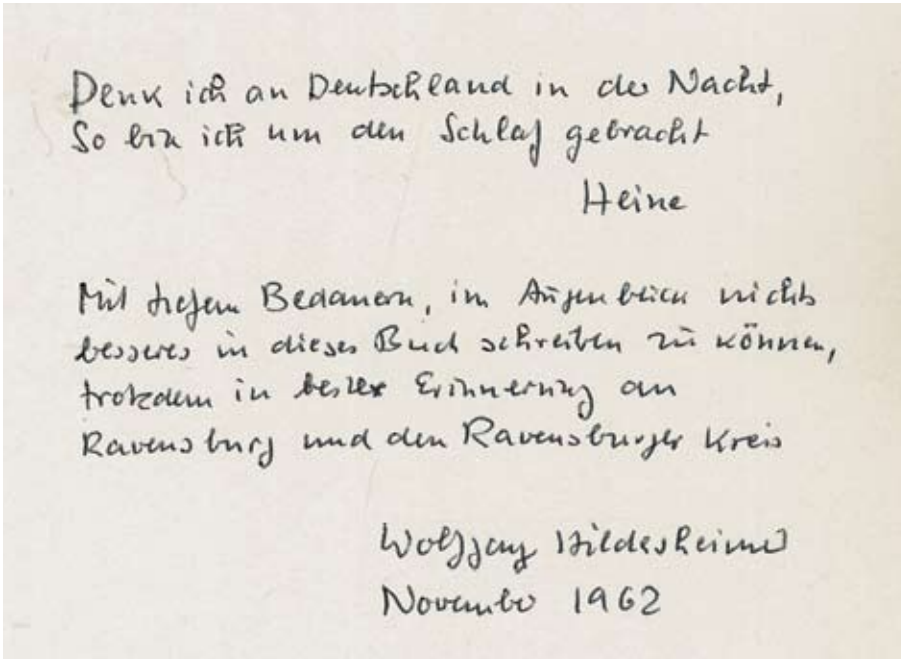 Denk ich an Deutschland in der Nacht,
So bin ich um den Schlaf gebracht
Heine
Mit tiefem Bedauern, im Augenblick nichts
besseres in dieses Buch schreiben zu können,
trotzdem in bester Erinnerung an
Ravensburg und den Ravensburger Kreis
Wolfgang Hildesheimer
November 1962